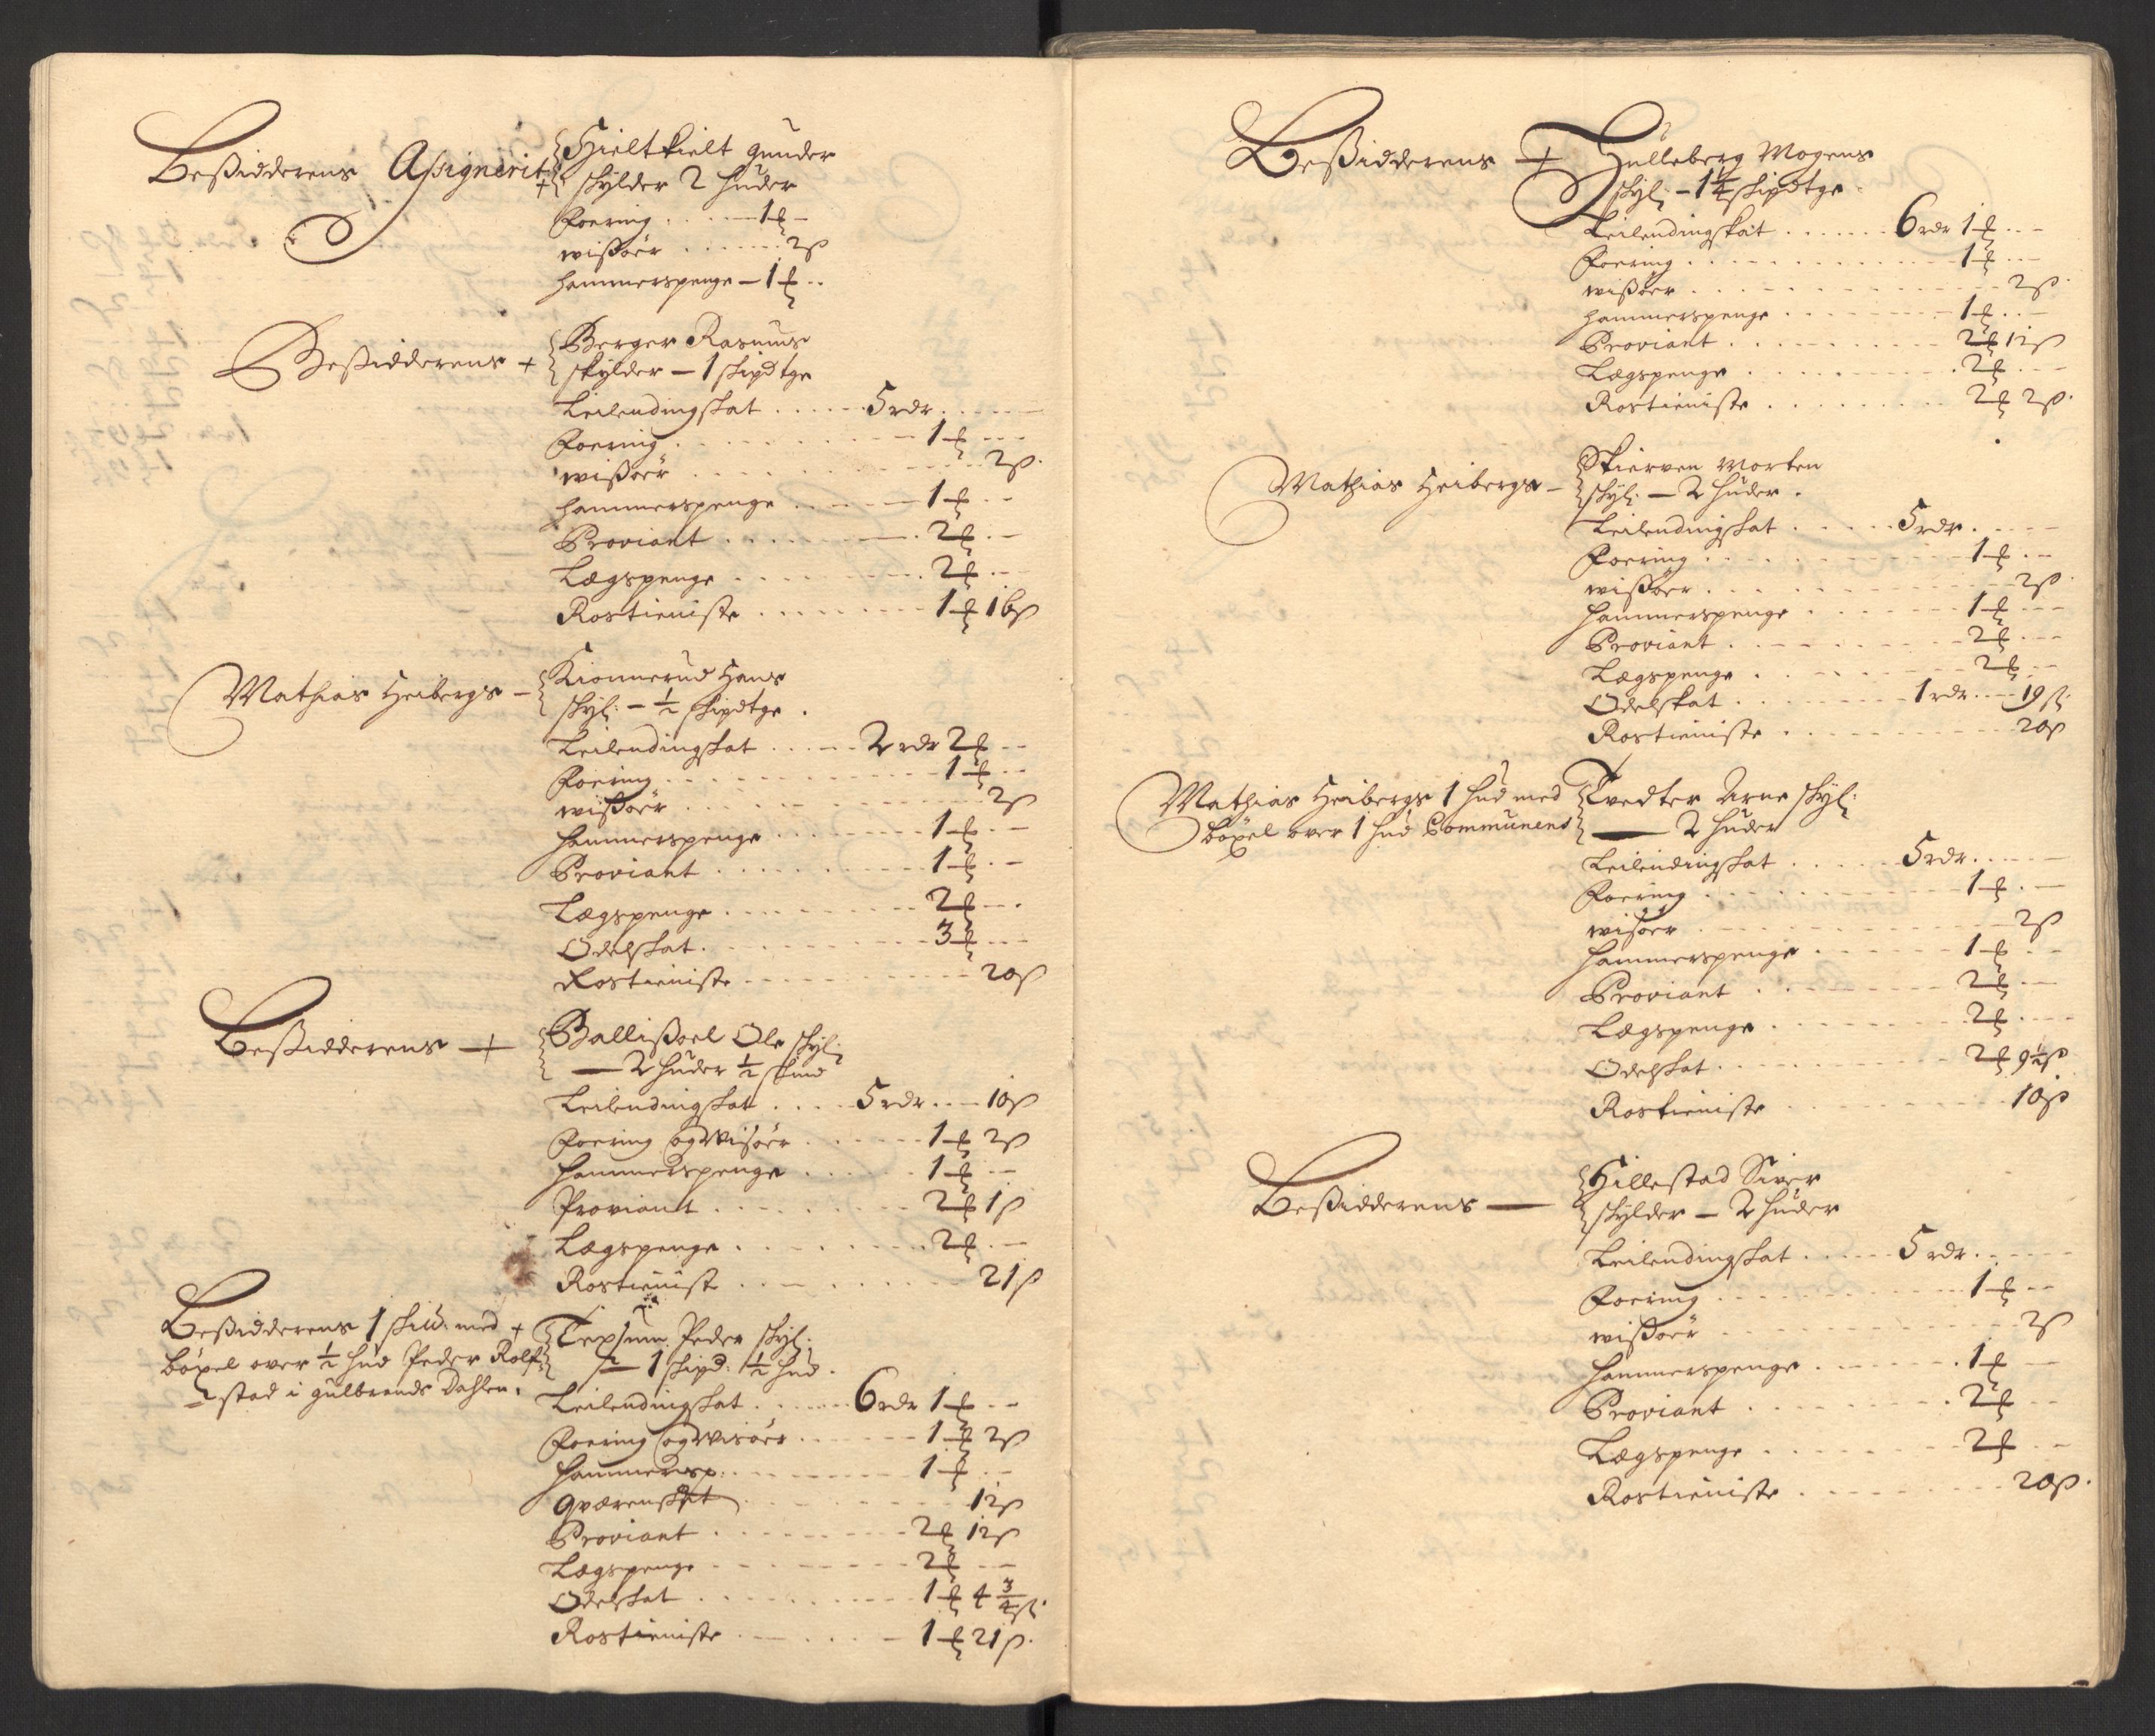 Beßidderens Assignerit +
Hieltkielt Gunder
skylder 2 huder
Foering . . . . 1 ℔ –
wißøer . . . . . 2 ß
hammerspenge – 1 ℔ . .
Beßidderens +
Berger Rasmus
skylder – 1 skipdtge
Leilendingskat . . . . . 5 rdr . . . .
Foering . . . . . . 1 ℔ . . .
wißøer . . . . . . 2 ß .
hammerspenge . . . . 1 ℔ . –
Proviant . . . . . . 2 ℔ . –
Lægspenge . . . . . . 2 ℔ . –
Rostieniste . . . . . . 1 ℔ 16 ß
Mathias Heibergs –
Kionnerud Hans
skyl: – ½ skipdtge .
Leilendingskat . . . . . 2 rdr 2 ℔ . –
Foering . . . . . . 1 ℔ . –
wißøer . . . . . . 2 ß
hammerspenge . . . . . . 1 ℔ . –
Proviant . . . . . . 1 ℔ . –
Lægspenge . . . . . . 2 ℔ . – .
Odelskat . . . . . . 3 ℔ . . .
Rostieniste . . . . . . 20 ß
Beßidderens +
Ballißoel Ole skyl:
– 2 huder ½ skind
Leilendingskat . . . . 5 rdr . . – 10 ß
Foering og Wisøer . . . . . 1 ℔ 2 ß
Hammerspenge . . . . . 1 ℔ . –
Proviant . . . . . . 2 ℔ 1 ß
Lægspenge . . . . . . 2 ℔ . –
Rostienist . . . . . . 21 ß
Beßidderens 1 skid: med +
böxel over ½ hud Peder Rolf
stad i gulbrands Dahlen .
Peder skyl:
– 1 skipd: ½ hud .
Leilendingskat . . . . . 6 rdr 1 ℔ . –
Foering og Wisøer . . . . . 1 ℔ 2 ß
Hammersp: . . . . . . 1 ℔ . –
Qværenskat . . . . . . 12 ß
Proviant . . . . . . 2 ℔ 12 ß
Lægspenge . . . . . . 2 ℔ . –
Odelskat . . . . . . 1 ℔ 4 ¾ ß .
Rostieniste . . . . . . 1 ℔ 21 ß .
Beßidderens +
Hulleberg Mogens
skyl: – 1¼ skipdtge
Leilendingskat . . . . . . 6 rdr 1 ℔ . . –
Foering . . . . . . 1 ℔ . . .
wißøer . . . . . . 2 ß .
hammerspenge . . . . . . 1 ℔ . . –
Proviant . . . . . . 2 ℔ 12 ß
Lægspenge . . . . . . 2 ℔ . . –
Rostieniste . . . . . . 2 ℔ 2 ß .
Mathias Heibergs –
Skierven Morten
skyl: – 2 huder .
Leilendingskat . . . . . 5 rdr . . . –
Foering . . . . . . 1 ℔ . –
wißøer . . . . . . 2 ß .
Hammerspenge . . . . . . 1 ℔ . . –
Proviant . . . . . . 2 ℔ . . –
Lægspenge . . . . . . 2 ℔ . –
Odelskat . . . . . . 1 rdr . . – 19 ß .
Rostieniste . . . . . . 20 ß
Mathias Heibergs 1 hud med
böxel over 1 hud Communens
Tvedter Arne skyl:
– 2 huder
Leilendingskat . . . . . 5 rdr . . . –
Foering . . . . . . 1 ℔ . –
wisøer . . . . . . 2 ß
Hammerspenge . . . . . . 1 ℔ . –
Proviant . . . . . . 2 ℔ . –
Lægspenge . . . . . . 2 ℔ . . –
Odelskat . . . . . . 2 ℔ 9½ ß
Rostieniste . . . . . . 10 ß
Beßidderens –
Hillestad Siver
skylder – 2 huder
Leilendingskat . . . . . 5 rdr . . . –
Foering . . . . . . 1 ℔ . –
wißøer . . . . . . 2 ß
Hammerspenge . . . . . . 1 ℔ . –
Proviant . . . . . . 2 ℔ . –
Lægspenge . . . . . . 2 ℔ . –
Rostieniste . . . . . . 20 ß .